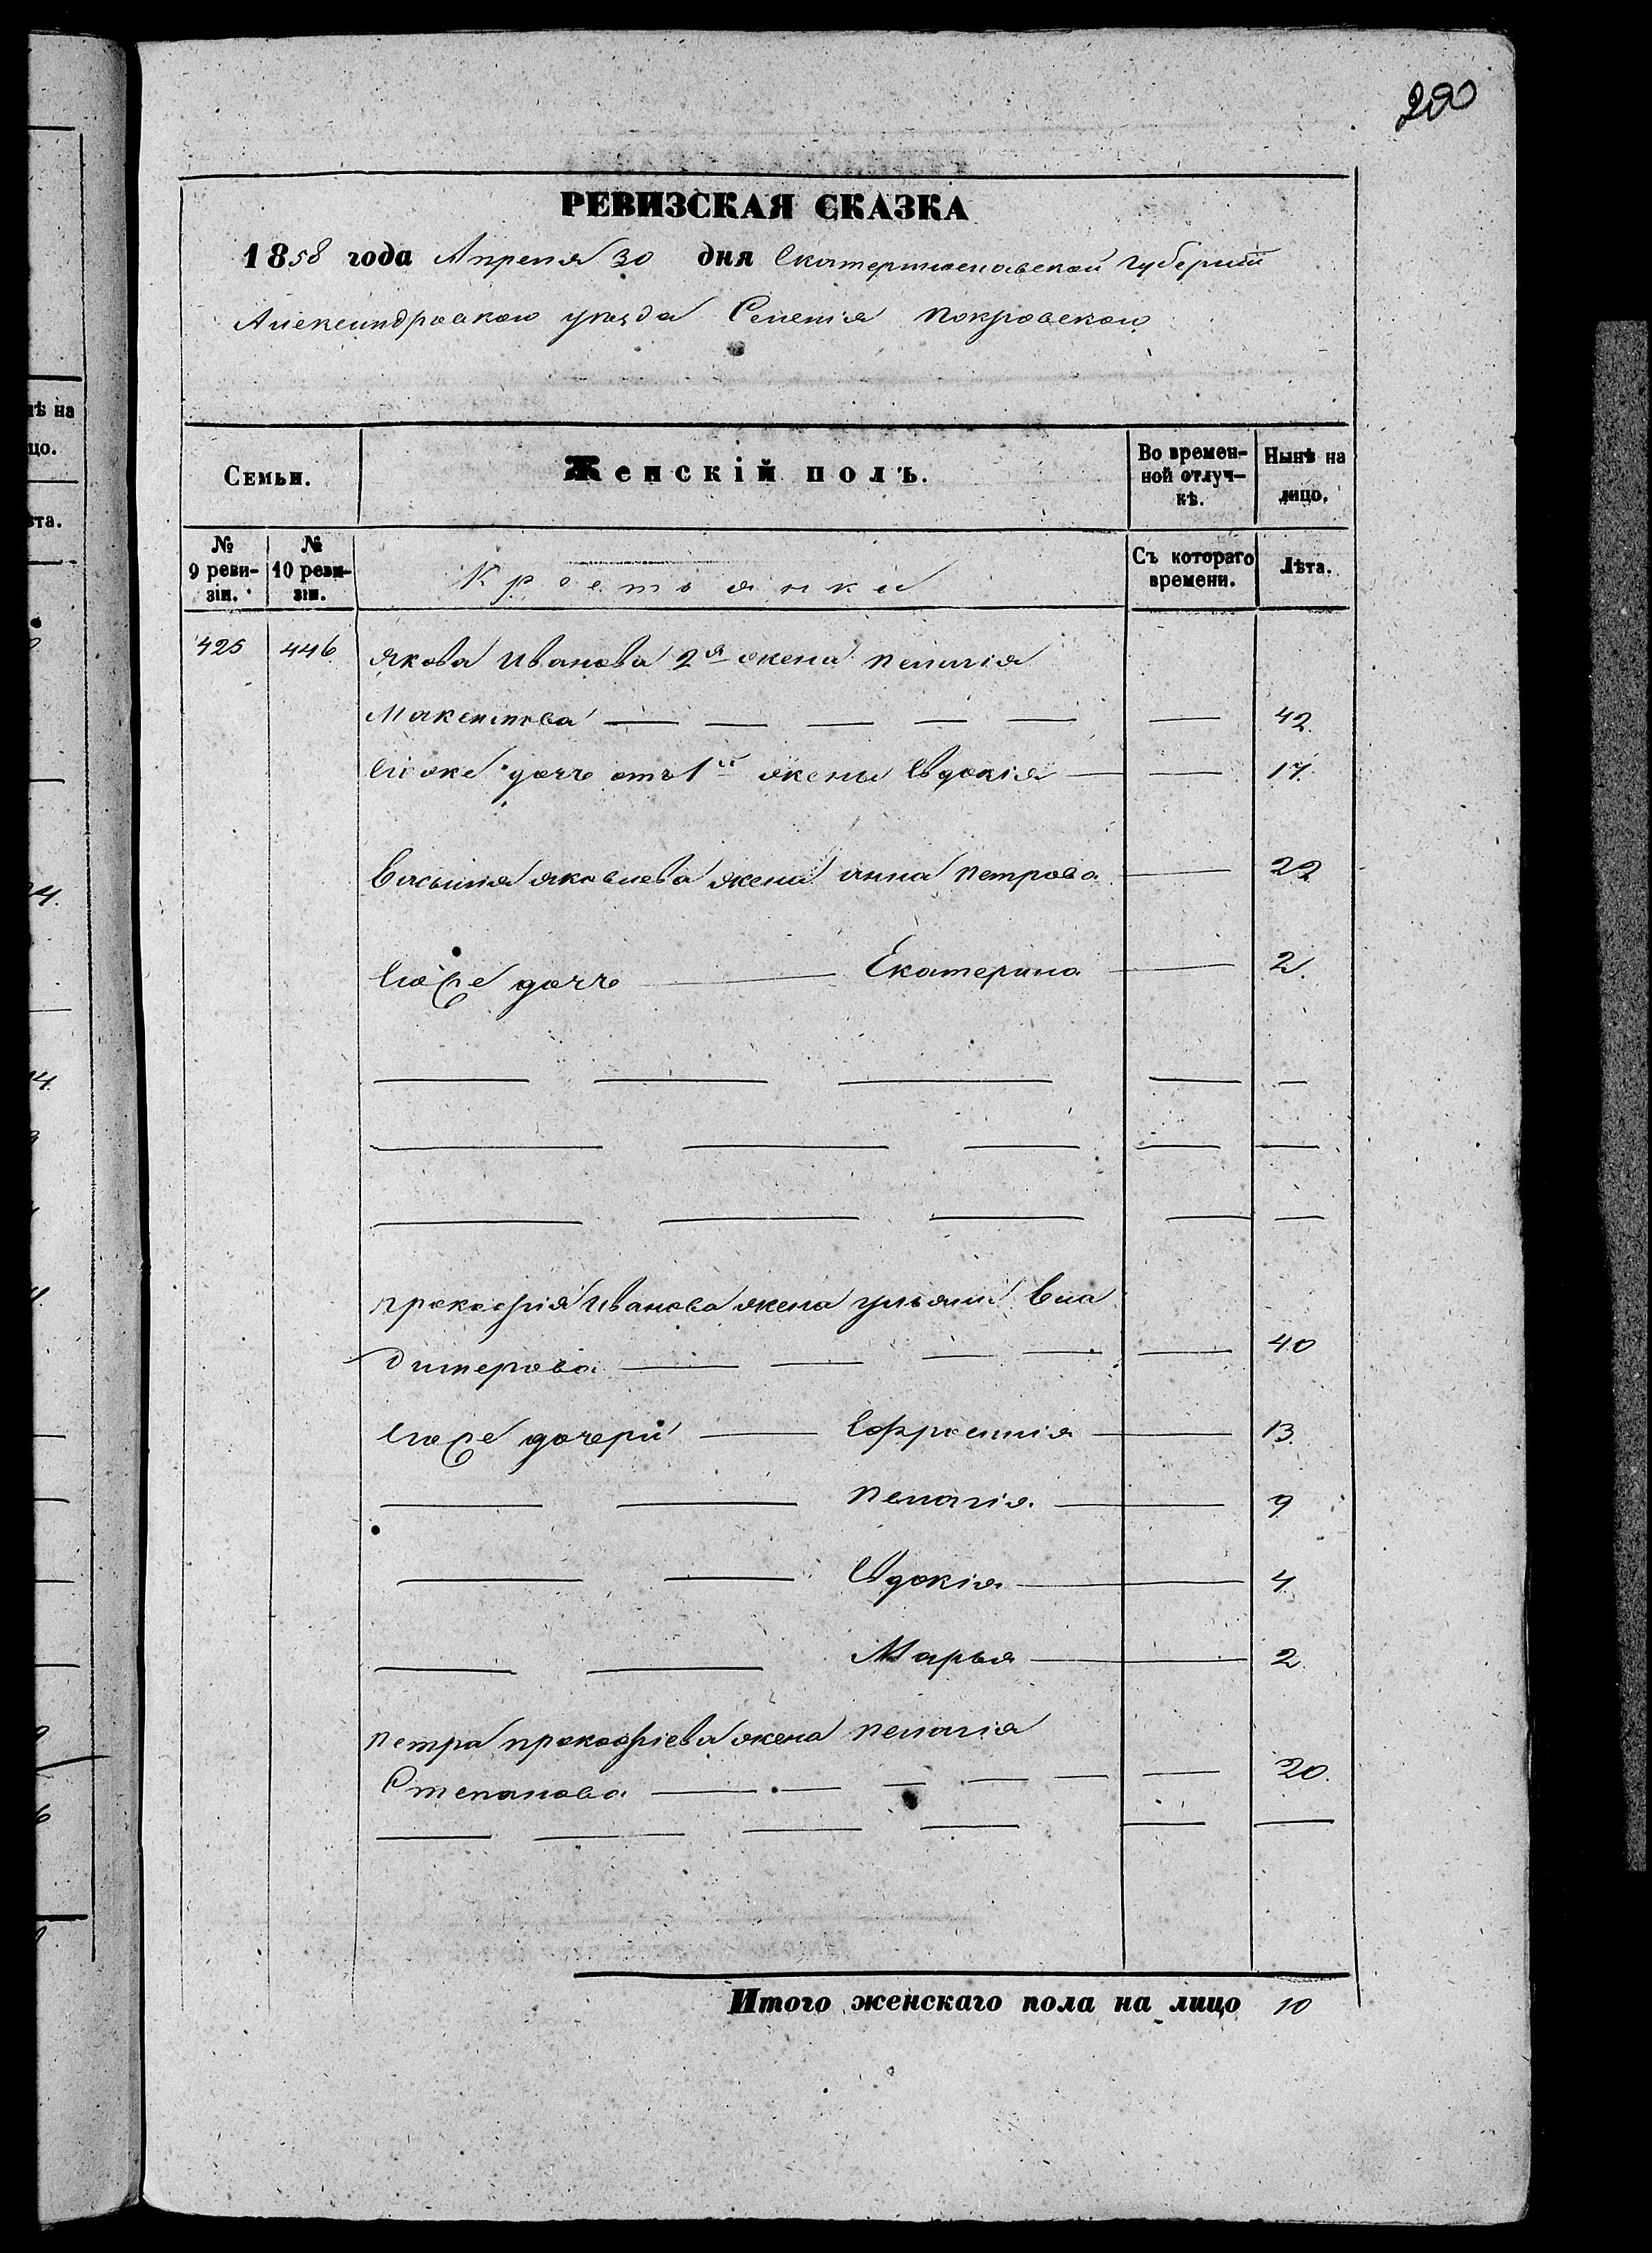 200
РЕВИЗСКАЯ СКАЗКА
1858 года Апреля 30 дня Екатеринославской Губерніи
Александровскаго уѣзда Селенія Покровскаго
Семьи.
Женскій полъ.
Во времен-
ной отлуч-
кѣ.
Нынѣ на
лицо.
№
9 реви-
зіи.
№
10 реви-
зіи.
Крестьянки
Съ котораго
времени.
Лѣта.
425 446 Якова Иванова 2я жена Пелагія
42
Его же дочь отъ 1й жены Евдокія 17
Василія Яковлева жена Анна Петрова 22
Его же дочь Екатерина 2
Прокофія Иванова жена Ульяна Вла
димерова 40
Его же дочери Ефросинія 13
Пелагія 9
Евдокія 4
Марья 2
Петра Прокофіева жена Пелагія
Степанова 20
Итого женскаго пола на лицо 10
ѣ на
цо.
ѣта.